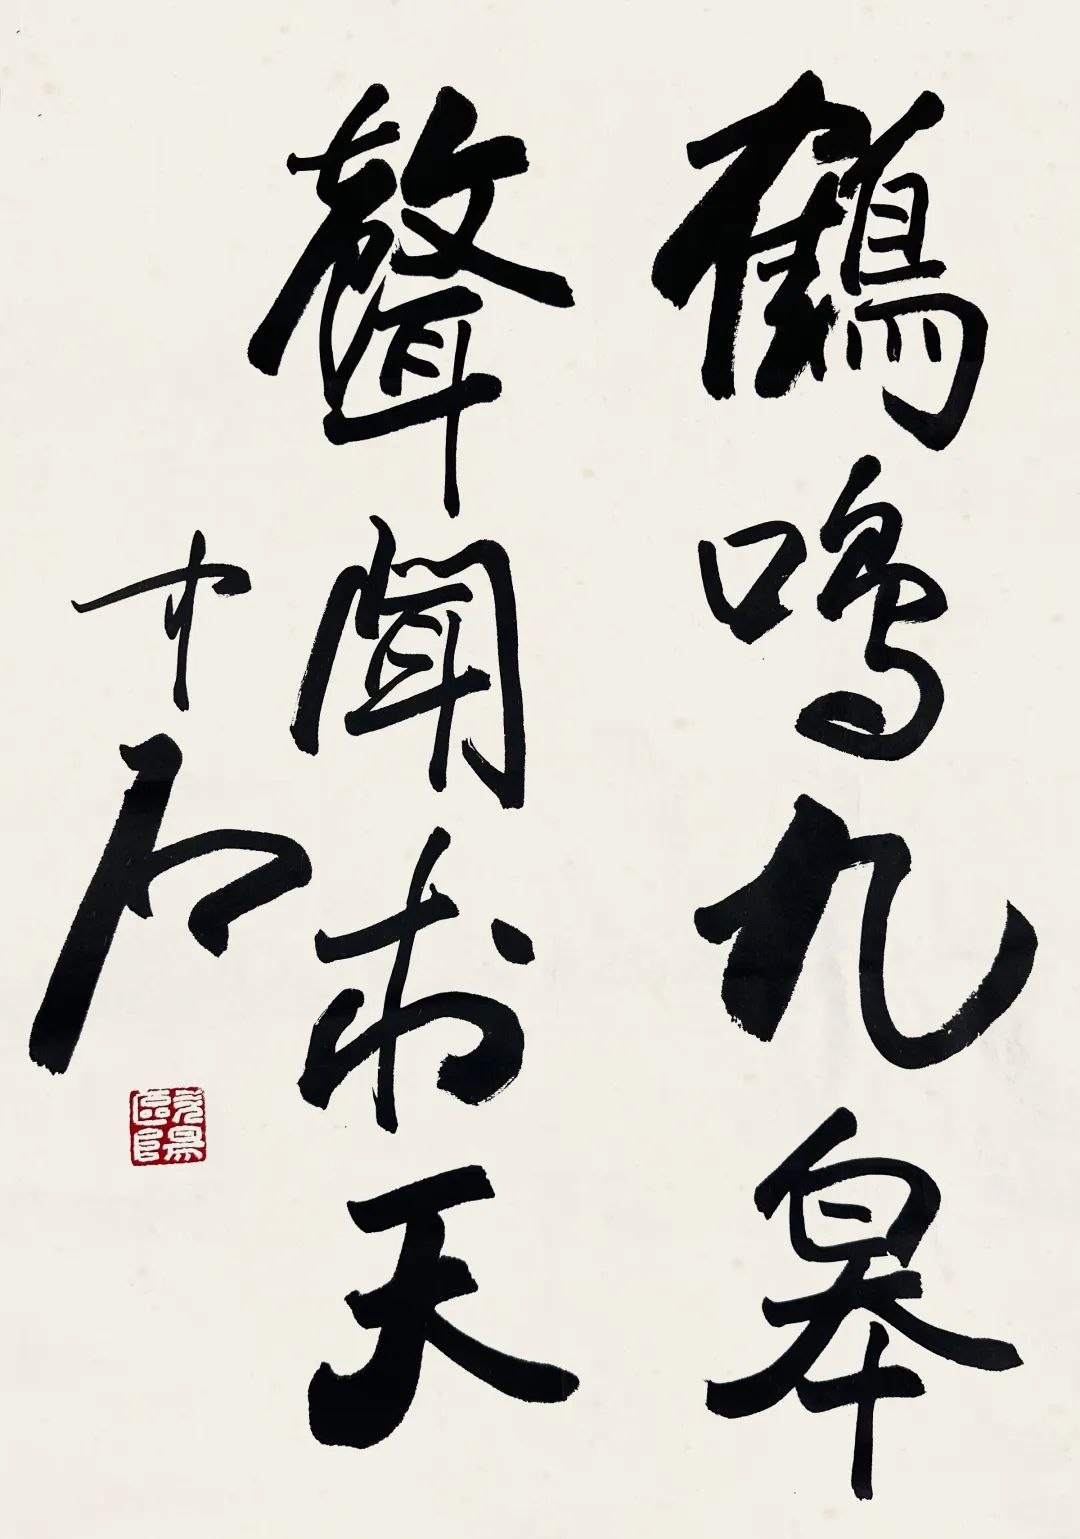 鶴鳴九皋
聲聞於天
中石
歐陽